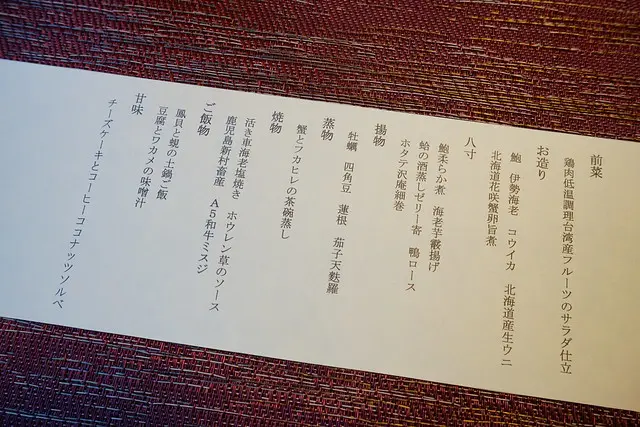 前菜
鶏肉低温調理台湾産フルーツのサラダ仕立
お造り
鮑　伊勢海老　コウイカ　北海道産生ウニ
北海道花咲蟹卵旨煮
八寸
鮑柔らか煮　海老芋霰揚げ
蛤の酒蒸しゼリー寄　鴨ロース
ホタテ沢庵細巻
揚物
牡蠣　四角豆　蓮根　茄子天麩羅
蒸物
蟹とフカヒレの茶碗蒸し
焼物
活き車海老塩焼き　ホウレン草のソース
鹿児島新村畜産　A5和牛ミスジ
ご飯物
鳳貝と蜆の土鍋ご飯
豆腐とワカメの味噌汁
甘味
チーズケーキとコーヒーココナッツソルベ